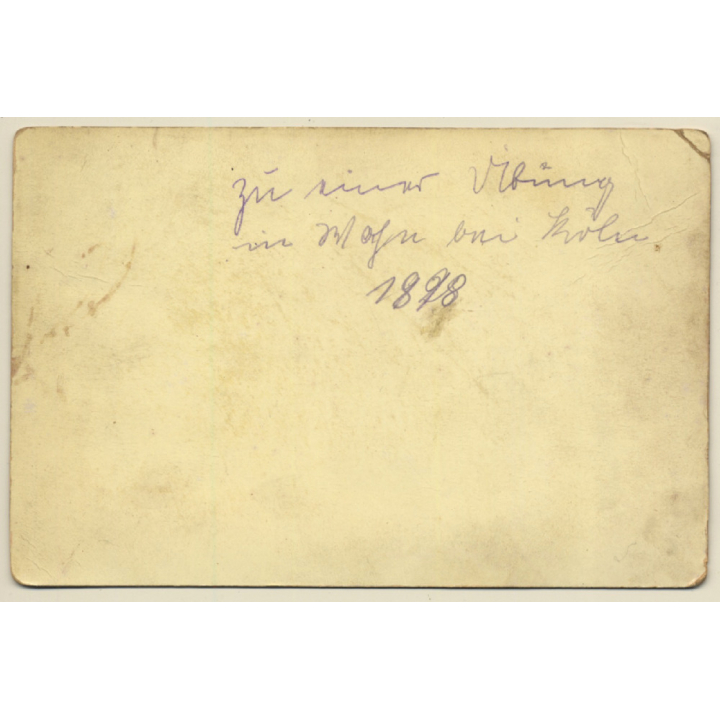 zu einer Übung
in Wahn bei Köln
1898